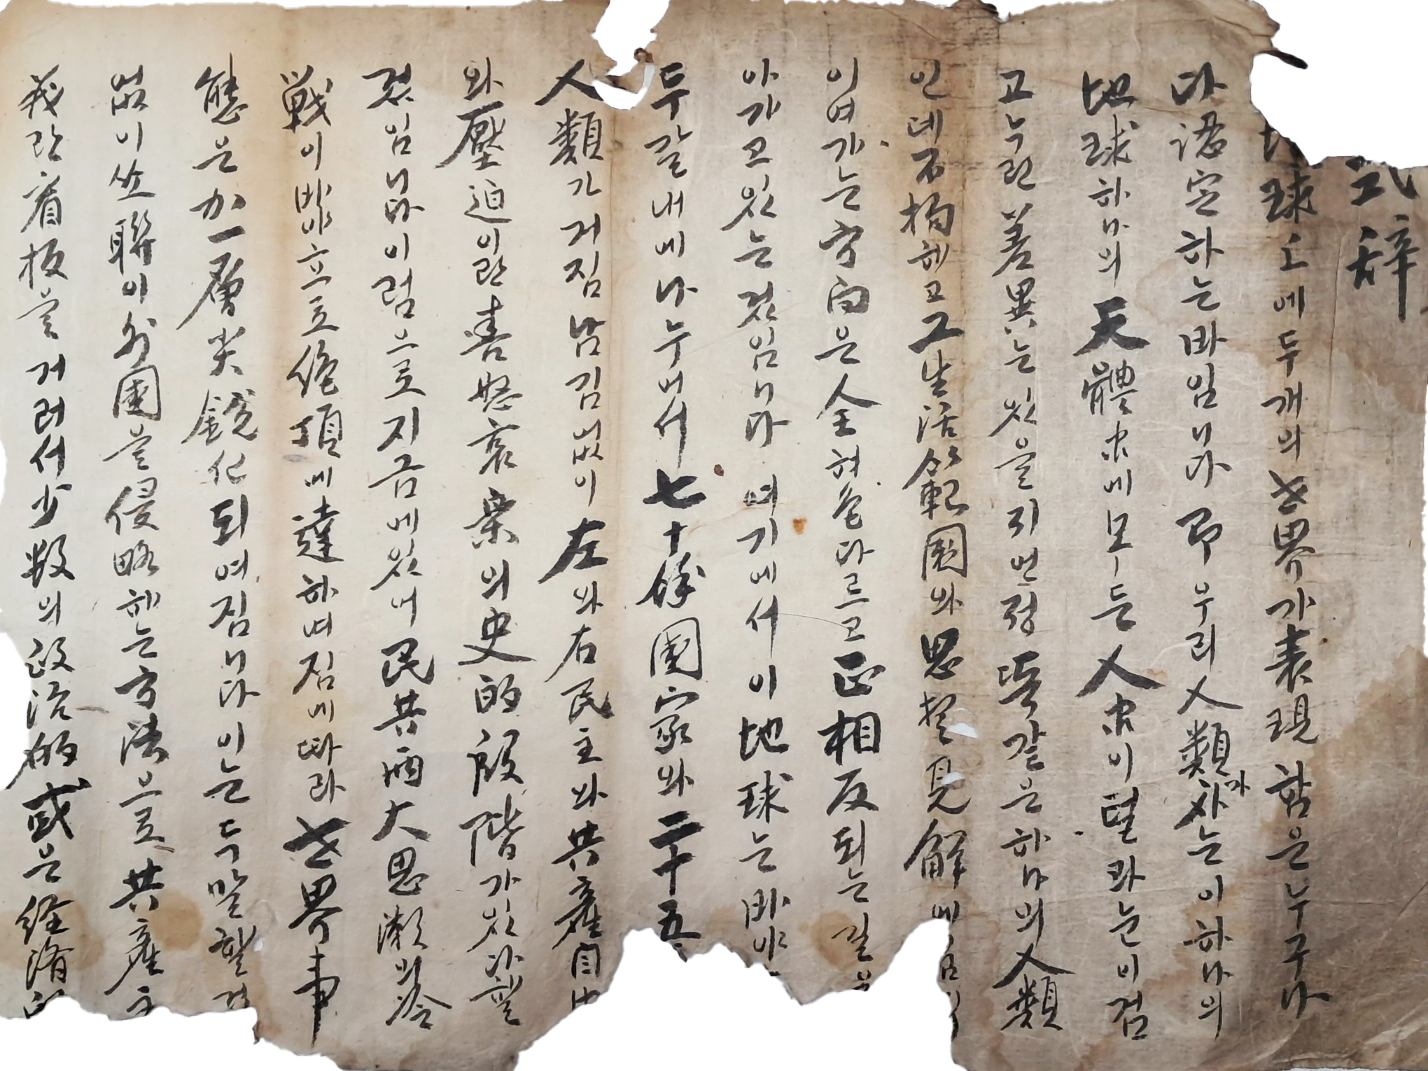 式辞
地球上에두개의世界가表現함은누구나
다認定하는바임니다即우리人類가사는이하나의
地球하나의天體中에모든人中이털과눈비검
고누런差異는있을지번정똑같은하나의人類
인데不拘헤고그生活範圍와思想見解
이여가는方向은全혀色다르고正相反되는길
아가고있는것임니다여기에서이地球는바야
두갈내메나누어서七十餘國家와二十五
人類가거짐남김없이左와右民主와共産自
와壓迫이란喜怒哀楽의史的段階가있다할
것임니다이럼으로지금에있어民共両大思潮의冷
戦이바야흐로絶頂에達하여짐에따라世界事
態은가一層尖鋭化되여짐니다이는두말할것
없이쏘聯이外國을侵略헤는方法으로共産主
義란看板을거러서少数의政治的或은経済的